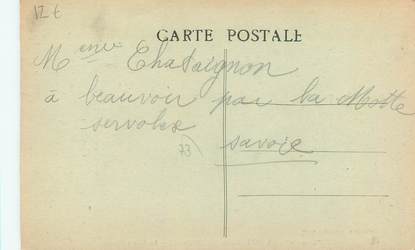 12 €
CARTE POSTALE
Mme Chataignon
à beauvoir par la Motte
servolex
73
savoie